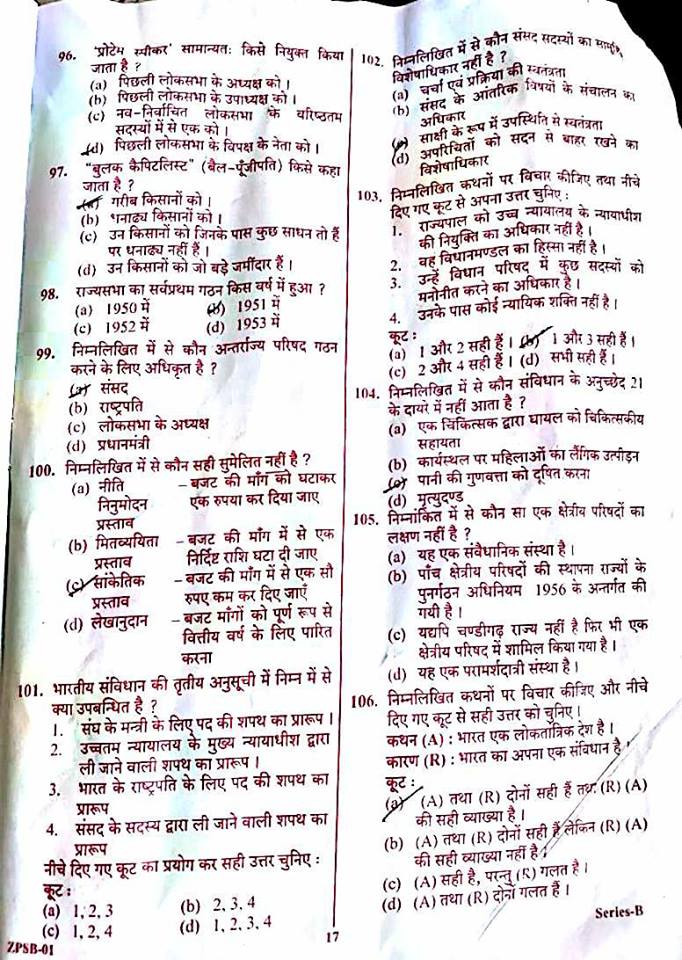 96. 'प्रोटेम स्पीकर' सामान्यतः किसे नियुक्त किया
जाता है ?
(a) पिछली लोकसभा के अध्यक्ष को ।
(b) पिछली लोकसभा के उपाध्यक्ष को ।
(c) नव-निर्वाचित लोकसभा के वरिष्ठतम
सदस्यों में से एक को ।
(d) पिछली लोकसभा के विपक्ष के नेता को ।
97. "बुलक कैपिटलिस्ट" (बैल-पूँजीपति) किसे कहा
जाता है ?
(a) गरीब किसानों को ।
(b) धनाढ्य किसानों को ।
(c) उन किसानों को जिनके पास कुछ साधन तो हैं
पर धनाढ्य नहीं हैं ।
(d) उन किसानों को जो बड़े जमींदार हैं ।
98. राज्यसभा का सर्वप्रथम गठन किस वर्ष में हुआ ?
(a) 1950 में (b) 1951 में
(c) 1952 में (d) 1953 में
99. निम्नलिखित में से कौन अन्तर्राज्य परिषद गठन
करने के लिए अधिकृत है ?
(a) संसद
(b) राष्ट्रपति
(c) लोकसभा के अध्यक्ष
(d) प्रधानमंत्री
100. निम्नलिखित में से कौन सही सुमेलित नहीं है ?
(a) नीति – बजट की माँग को घटाकर
निनुमोदन एक रुपया कर दिया जाए
प्रस्ताव
(b) मितव्ययिता – बजट की माँग में से एक
प्रस्ताव निर्दिष्ट राशि घटा दी जाए
(c) सांकेतिक – बजट की माँग में से एक सौ
प्रस्ताव रुपए कम कर दिए जाएँ
(d) लेखानुदान – बजट माँगों को पूर्ण रूप से
वित्तीय वर्ष के लिए पारित
करना
101. भारतीय संविधान की तृतीय अनुसूची में निम्न में से
क्या उपबन्धित है ?
1. संघ के मन्त्री के लिए पद की शपथ का प्रारूप ।
2. उच्चतम न्यायालय के मुख्य न्यायाधीश द्वारा
ली जाने वाली शपथ का प्रारूप ।
3. भारत के राष्ट्रपति के लिए पद की शपथ का
प्रारूप
4. संसद के सदस्य द्वारा ली जाने वाली शपथ का
प्रारूप
नीचे दिए गए कूट का प्रयोग कर सही उत्तर चुनिए :
कूट :
(a) 1, 2, 3 (b) 2, 3, 4
(c) 1, 2, 4 (d) 1, 2, 3, 4
ZPSB-01
17
102. निम्नलिखित में से कौन संसद सदस्यों का
विशेषाधिकार नहीं है ?
(a) चर्चा एवं प्रक्रिया की स्वतंत्रता
(b) संसद के आंतरिक विषयों के संचालन का
अधिकार
(c) साक्षी के रूप में उपस्थिति से स्वतंत्रता
(d) अपरिचितों को सदन से बाहर रखने का
विशेषाधिकार
103. निम्नलिखित कथनों पर विचार कीजिए तथा नीचे
दिए गए कूट से अपना उत्तर चुनिए :
1. राज्यपाल को उच्च न्यायालय के न्यायाधीश
की नियुक्ति का अधिकार नहीं है ।
2. वह विधानमण्डल का हिस्सा नहीं है ।
3. उन्हें विधान परिषद में कुछ सदस्यों को
मनोनीत करने का अधिकार है ।
4. उनके पास कोई न्यायिक शक्ति नहीं है ।
कूट :
(a) 1 और 2 सही हैं । (b) 1 और 3 सही हैं ।
(c) 2 और 4 सही हैं । (d) सभी सही हैं ।
104. निम्नलिखित में से कौन संविधान के अनुच्छेद 21
के दायरे में नहीं आता है ?
(a) एक चिकित्सक द्वारा घायल को चिकित्सकीय
सहायता
(b) कार्यस्थल पर महिलाओं का लैंगिक उत्पीड़न
(c) पानी की गुणवत्ता को दूषित करना
(d) मृत्युदण्ड
105. निम्नांकित में से कौन सा एक क्षेत्रीय परिषदों का
लक्षण नहीं है ?
(a) यह एक संवैधानिक संस्था है ।
(b) पाँच क्षेत्रीय परिषदों की स्थापना राज्यों के
पुनर्गठन अधिनियम 1956 के अन्तर्गत की
गयी है ।
(c) यद्यपि चण्डीगढ़ राज्य नहीं है फिर भी एक
क्षेत्रीय परिषद में शामिल किया गया है ।
(d) यह एक परामर्शदात्री संस्था है ।
106. निम्नलिखित कथनों पर विचार कीजिए और नीचे
दिए गए कूट से सही उत्तर को चुनिए ।
कथन (A) : भारत एक लोकतांत्रिक देश है ।
कारण (R) : भारत का अपना एक संविधान है
कूट :
(a) (A) तथा (R) दोनों सही हैं तथा (R) (A)
की सही व्याख्या है ।
(b) (A) तथा (R) दोनों सही हैं लेकिन (R) (A)
की सही व्याख्या नहीं है ।
(c) (A) सही है, परन्तु (R) गलत है ।
(d) (A) तथा (R) दोनों गलत हैं ।
Series-B